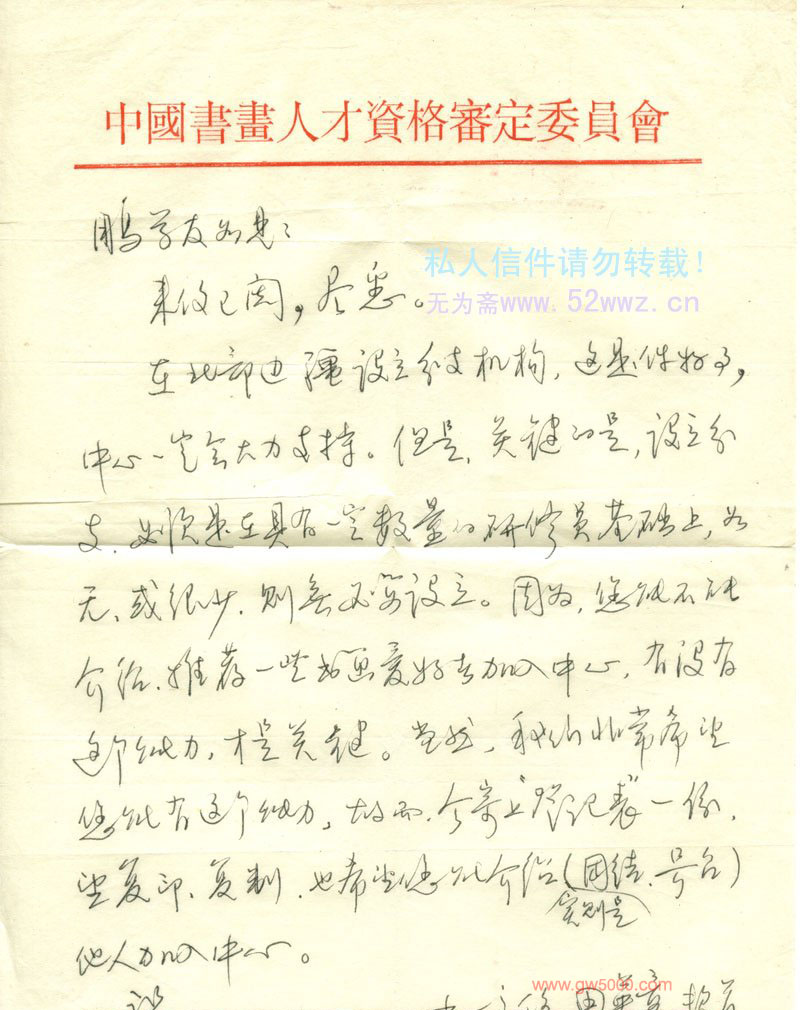 中國書畫人才資格審定委員會
鹏学友如见：
私人信件请勿转载！
来信已阅，尽悉。
无为斋www.52wwz.cn
在北部边疆设立分支机构，这是件好事，
中心一定会大力支持。但是，关键的是，设立分
支，必须是在具有一定数量的研修员基础上，如
无、或很少，则无必要设立。因为，您能不能
介绍、推荐一些书画爱好者加入中心，有没有
这个能力，才是关键。当然，我们非常希望
您能有这个能力，故而，今寄上“登记表”一份，
望复印、复制，也希望您能介绍（团结、号召）
实则是
他人加入中心。
www.gw5000.com